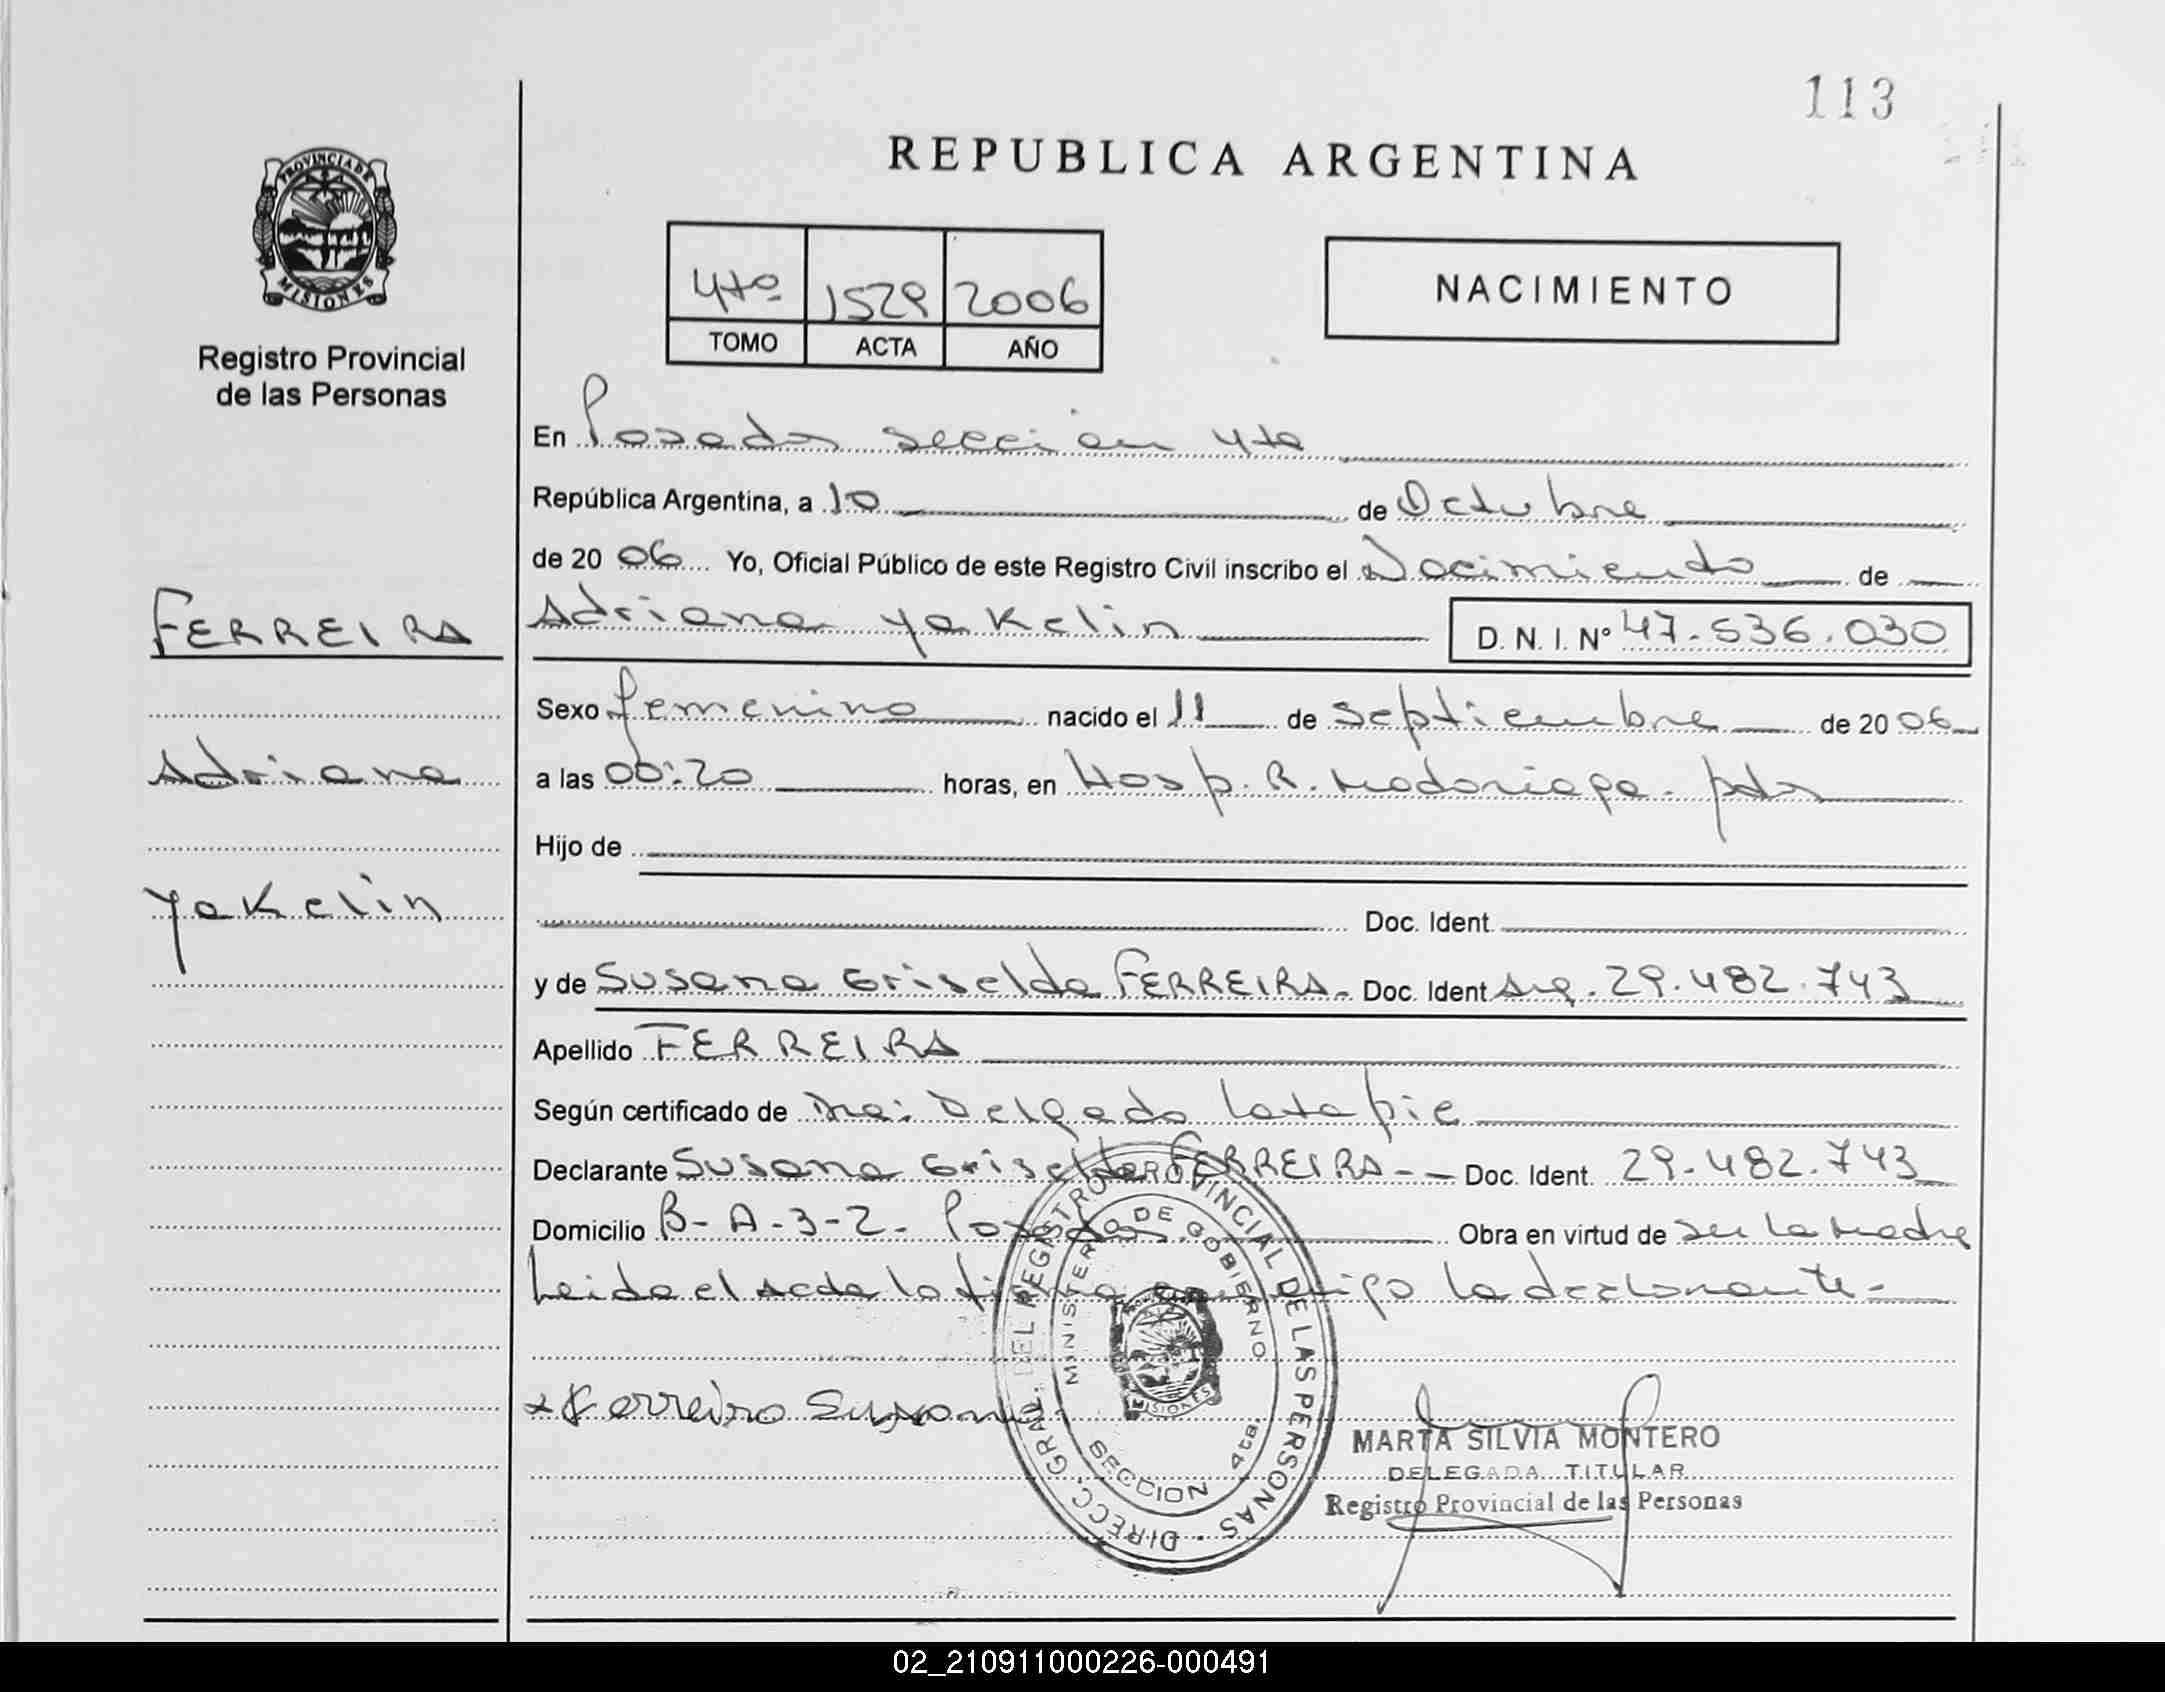 113
REPUBLICA ARGENTINA
PROVINCIA DE
MISIONES
Registro Provincial
de las Personas
4to 1529 2006
TOMO ACTA AÑO
NACIMIENTO
En Posadas sección 4ta
República Argentina, a 10 de Octubre
de 20 06 Yo, Oficial Público de este Registro Civil inscribo el Nacimiento de
FERREIRA
Adriana Yakelin D. N. I. Nº 47.536.030
Sexo femenino nacido el 11 de septiembre de 20 06
Adriana
a las 00:20 horas, en Hosp. R. Madariaga. pdas
Hijo de
Yakelin
Doc. Ident.
y de Susana Griselda FERREIRA. Doc. Ident Arg. 29.482.743
Apellido FERREIRA
Según certificado de Dra: Delgado Latapie
Declarante Susana Griselda FERREIRA-- Doc. Ident. 29.482.743
Domicilio B- A-3-2. Posadas Obra en virtud de ser la madre
Leida el acta la firma conmigo la declarante-
x Ferreira Susana
DIRECC. GRAL. DEL REGISTRO PROVINCIAL DE LAS PERSONAS
MINISTERIO DE GOBIERNO
MISIONES
SECCION 4ta.
MARTA SILVIA MONTERO
DELEGADA TITULAR
Registro Provincial de las Personas
02_210911000226-000491